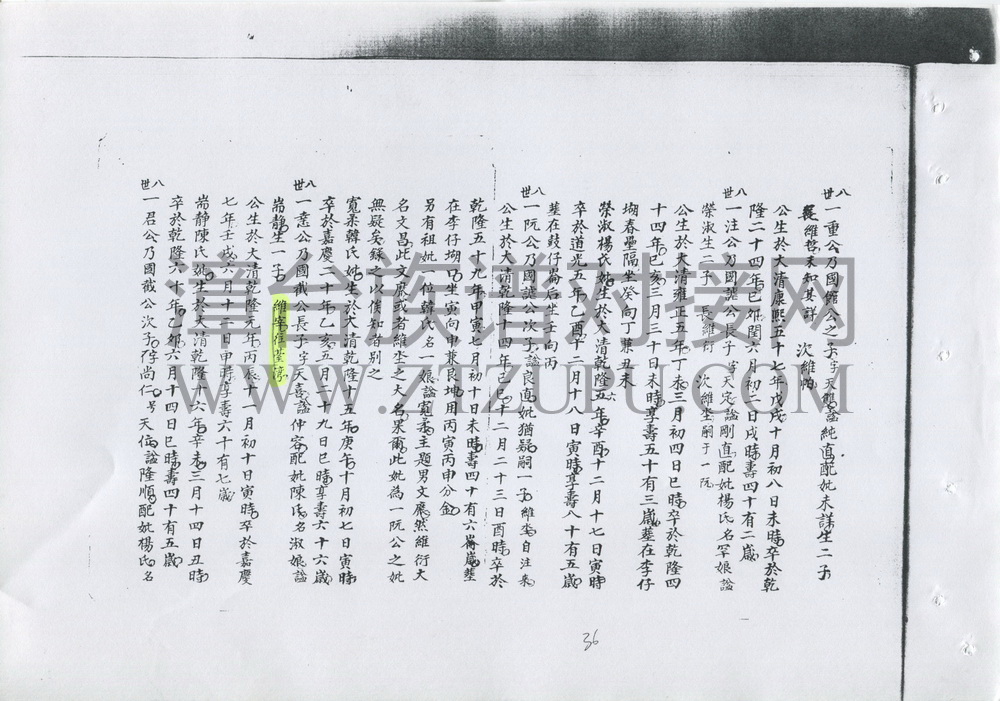 八世 一重公乃國舘公之子字天 諡純直配妣未詳生二子
長維哲未知其詳 次維
公生於大清康熙五十七年戊戌十月初八日未時卒於乾
隆二十四年己卯閏六月初二日戌時壽四十有二歲
八世 一注公乃國 公長子字天定諡剛直配妣楊氏名罕娘諡
榮淑生二子 長維衍 次維坐嗣于一阮
公生於大清雍正五年丁未三月初四日巳時卒於乾隆四
十四年己亥三月三十日未時享壽五十有三歲葬在李仔
坳春壘隔坐癸向丁兼丑未
榮淑楊氏妣生於大清乾隆六年辛酉十二月十七日寅時
卒於道光五年乙酉十二月十八日寅時享壽八十有五歲
葬在鼓仔崙后坐壬向丙
八世 一阮公乃國 公次子諡良直妣猶疑嗣一子維坐自注來
公生於大清乾隆十四年己巳十二月二十三日酉時卒於
乾隆五十九年甲寅七月初十日未時壽四十有六歲葬
在李仔坳口坐寅向申兼艮坤用丙寅丙申分金
另有祖妣一位韓氏名一娘諡寬柔主題男文應然維衍大
名文昌此文應或者維坐之大名果爾此妣為一阮公之妣
無疑矣錄之以俟知者別之
寬柔韓氏妣生於大清乾隆十五年庚午十月初七日寅時
卒於嘉慶二十年乙亥五月二十九日巳時享壽六十六歲
八世 一意公乃國 公長子字天喜諡仲容配妣陳氏名淑娘諡
耑靜生一子 維
公生於大清乾隆元年丙辰十一月初十日寅時卒於嘉慶
七年壬戌六月十二日申時享壽六十有七歲
耑靜陳氏妣生於大清乾隆十六年辛未三月十四日丑時
卒於乾隆六十年乙卯六月十四日巳時壽四十有五歲
八世 一君公乃國 公次子字尚仁号天位諡隆順配妣楊氏名
36
章台族譜收授网
WWW.ZTZUPU.COM